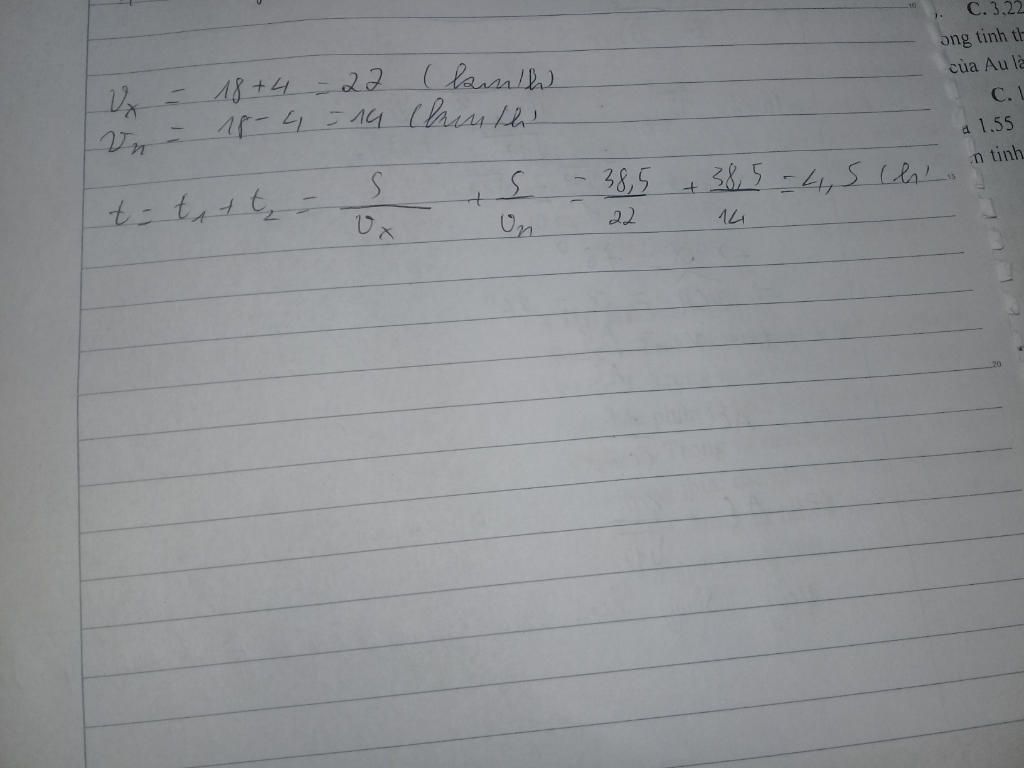 16
). C. 3,22
ong tinh th
của Au là
C. 1
a 1.55
n tinh
v_x = 18 + 4 = 22 (km/h)
v_n = 18 - 4 = 14 (km/h)
t = t_1 + t_2 = S/v_x + S/v_n = 38,5/22 + 38,5/14 = 4,5 (h)
15
20